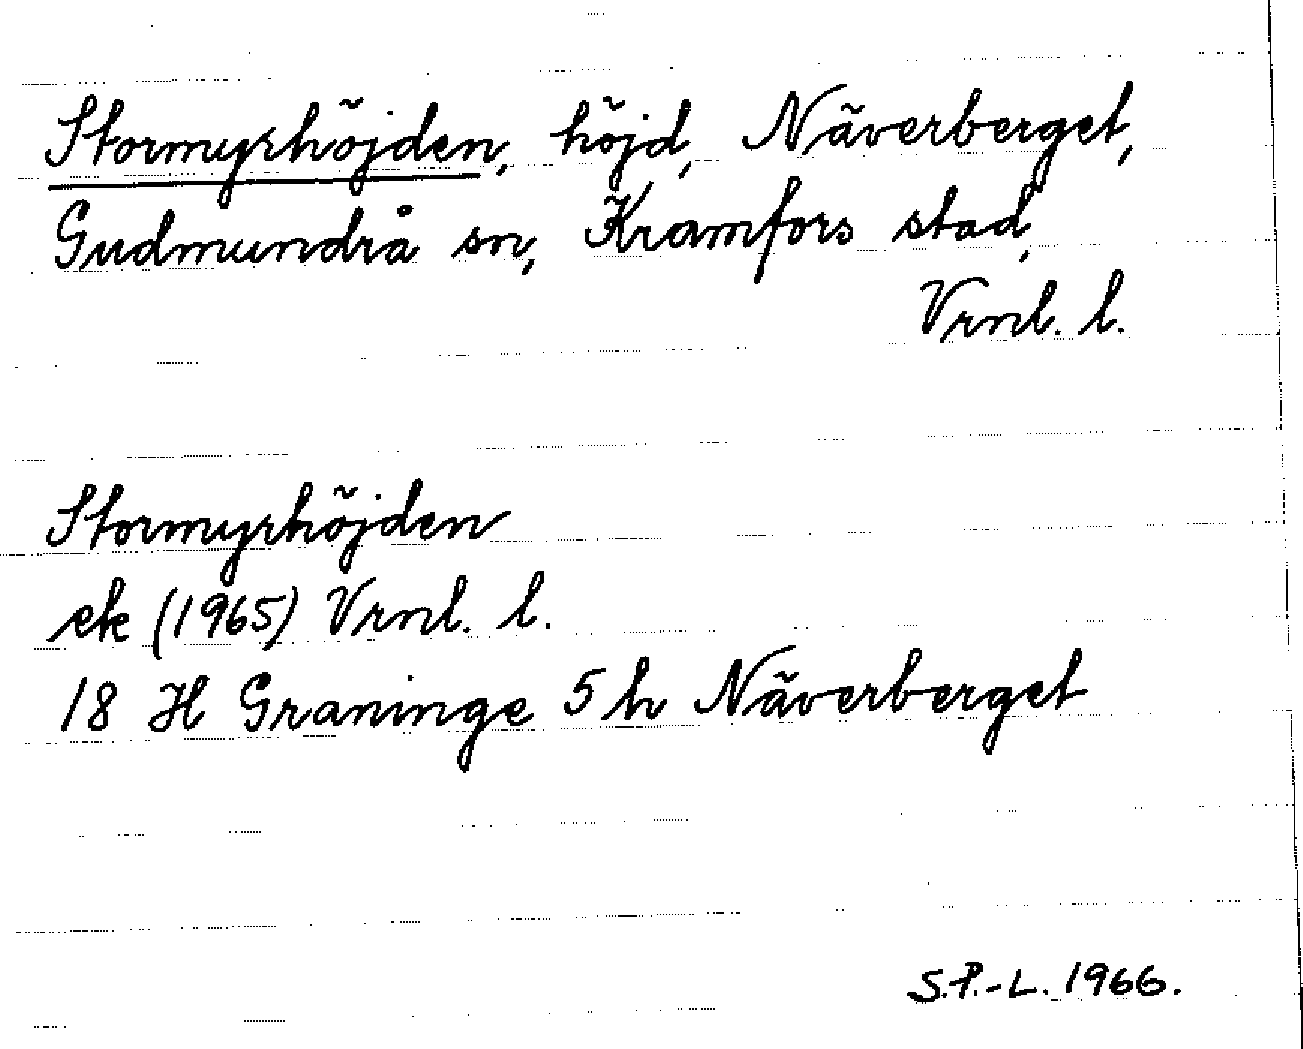 Stormyrhöjden, höjd, Näverberget,
Gudmundrå sn, Kramfors stad,
Vrnl. l.
Stormyrhöjden
ek (1965) Vrnl. l.
18 H Graninge 5 h Näverberget
S.P.-L. 1966.